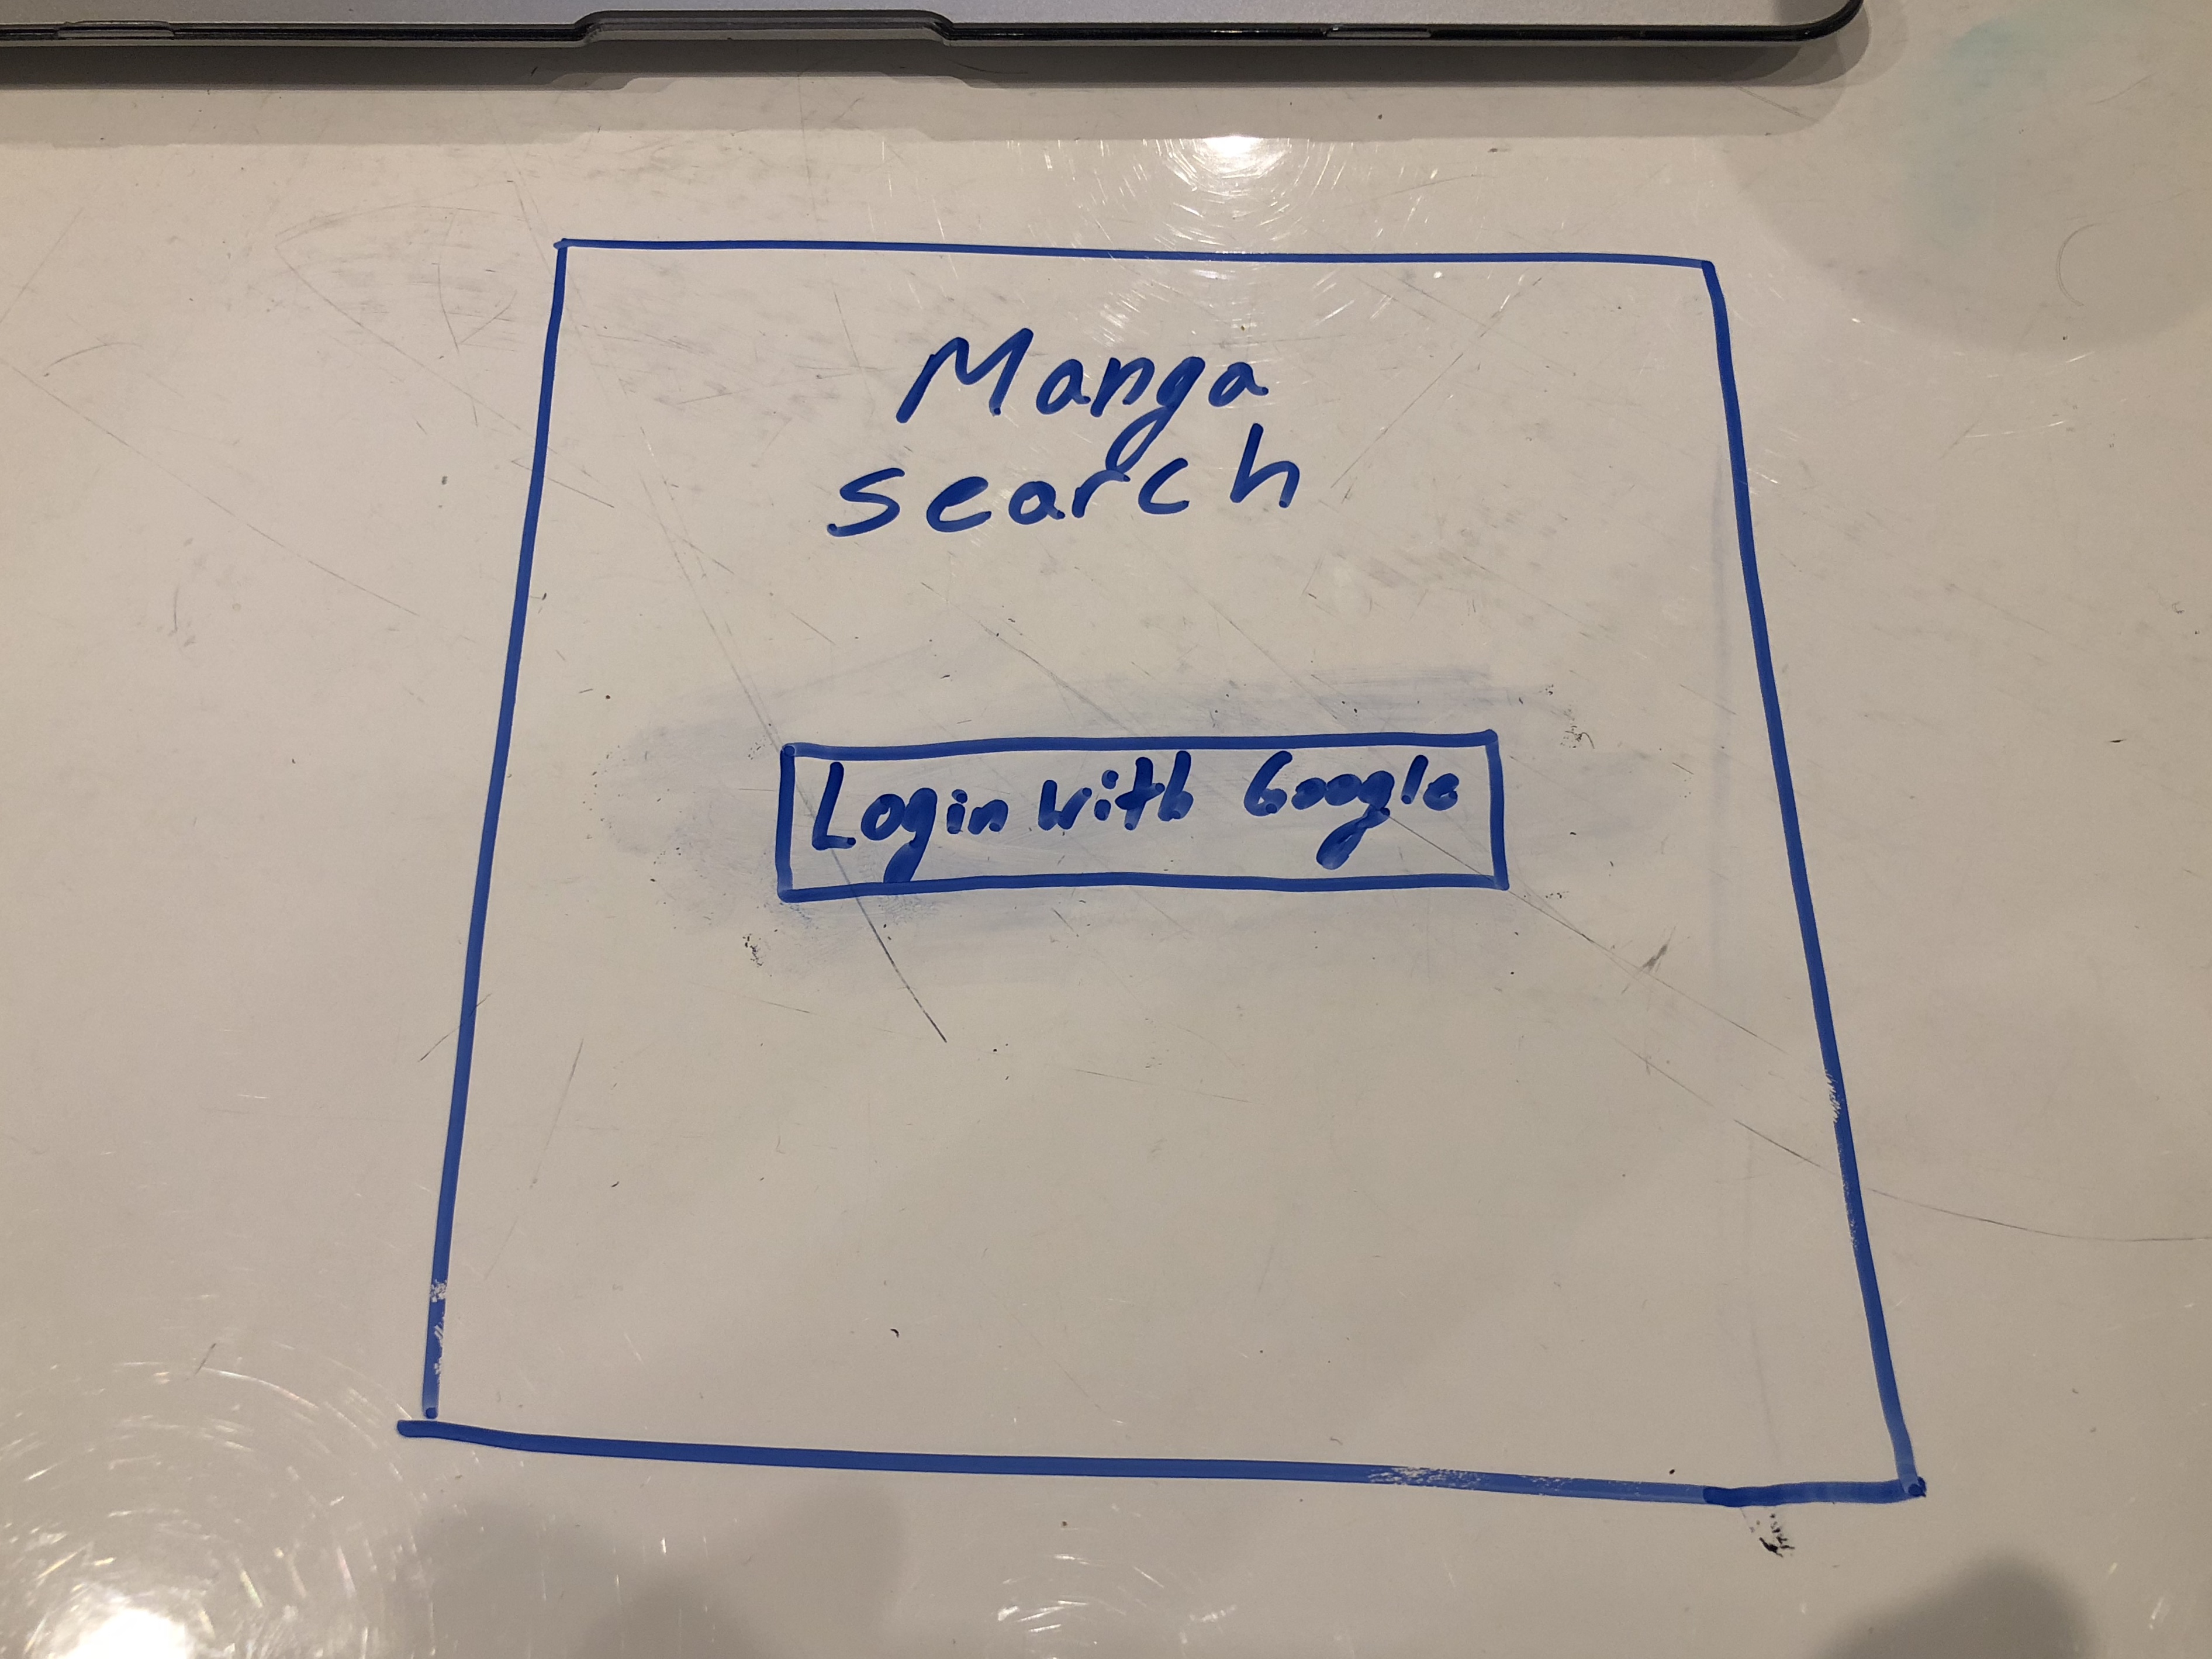 Manga
search
Login with Google